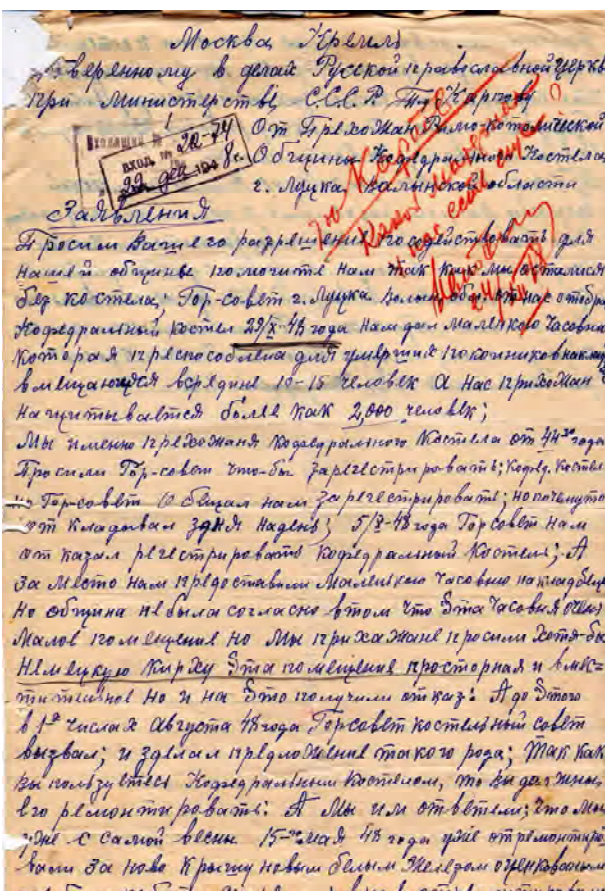 Москва Кремль
веренному в делах Русской православной церкви
при министерстве С.С.С.Р. Карпову
От Прехожан Римо-котолической
Общины Кафедрального Костела
г. Луцка Валынской области
Входящий №
вход. № 20-74
22 дек 1948 г.
Заявления
Просим Вашего разрешение и содействовать для
нашей общины помогите нам так как мы осталися
без костела; Гор-совет г. Луцка Волын. обл. от нас отобрал
Кофедральный костел 29/X-48 года нам дал маленькою Часовню
которая преспособлена для умерших покойников
вмещающися всредине 10-15 человек а нас прихожан
начитывается более как 2,000 человек;
Мы именно прехожаня Кофедрального Костела от 44 года
Просили Гор-совет что-бы зарегестрировать; Кофед. Костел
Гор-совет обещал нам зарегестрировать; но почемуто
от кладовал здня надень; 5/X-48 года Горсовет нам
от казал регестрировать кофедральный Костел; А
за место нам предоставили маленькою часовню на кладбеще
но община небыла согласно втом что эта часовня очень
малое помещение но мы прихажане просили хотя-бы
Немецкую Кирху эта помещение просторная и вмес=
тительное но и на это получили отказ: А до этого
в 1х числах Августа 48 года Горсовет костельный совет
вызвал; и зделал предложение такого рода; так как
вы пользуетесь Кофедральным Костелом, то вы должны
его ремонтировать: А мы им ответели; что мы
уже с самой весны 15-го мая 48 года уже отремонтиро
вали за ново крышу новым белым железом оценкованым